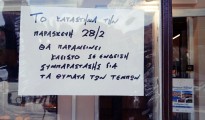 ΤΟ ΚΑΤΑΣΤΗΜΑ ΤΗΝ
ΠΑΡΑΣΚΕΥΗ 28/2
ΘΑ ΠΑΡΑΜΕΙΝΕΙ
ΚΛΕΙΣΤΟ ΣΕ ΕΝΔΕΙΞΗ
ΣΥΜΠΑΡΑΣΤΑΣΗΣ ΓΙΑ
ΤΑ ΘΥΜΑΤΑ ΤΩΝ ΤΕΜΠΩΝ